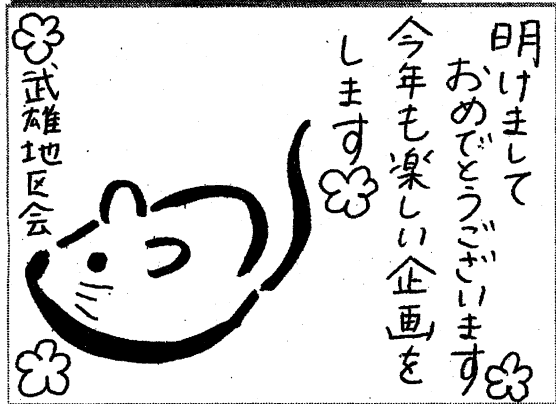 明けまして
おめでとうございます
今年も楽しい企画を
します
武雄地区会